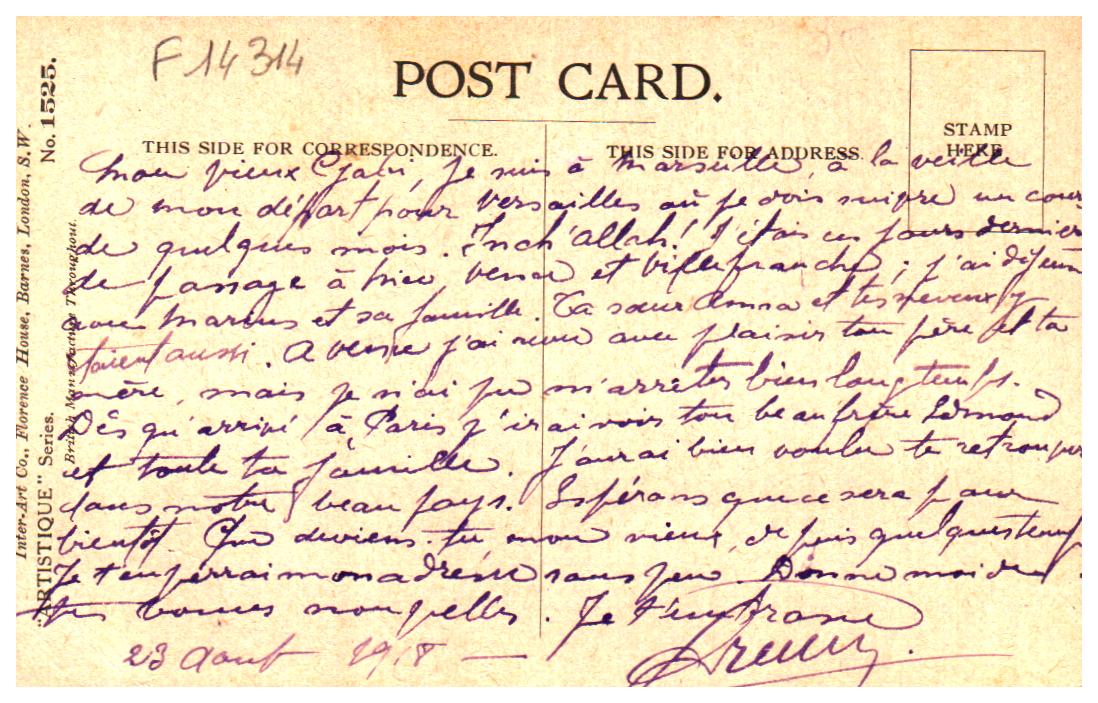 F 14314
POST CARD.
THIS SIDE FOR CORRESPONDENCE.
THIS SIDE FOR ADDRESS.
STAMP
HERE
No. 1525.
Inter-Art Co., Florence House, Barnes, London, S.W.
British Manufacture Throughout.
"ARTISTIQUE" Series.
Mon vieux Gabi, je suis à Marseille, à la veille
de mon départ pour Versailles où je dois suivre un cours
de quelques mois. Inch'allah! J'étais ces jours derniers
de passage à Nice, Vence et Villefranche; j'ai déjeuné
avec Marius et sa famille. Ta sœur Emma et tes neveux y
étaient aussi. A Vence j'ai revu avec plaisir ton père et ta
mère, mais je n'ai pu m'arrêter bien longtemps.
Dès qu'arrivé à Paris j'irai voir ton beau frère Edmond
et toute ta famille. J'aurai bien voulu te retrouver
dans notre beau pays. Espérons que ce sera pour
bientôt. Que deviens-tu, mon vieux, depuis quelques temps
Je t'enverrai mon adresse sous peu. Donne moi de
tes bonnes nouvelles. Je t'embrasse
23 Aout 1918